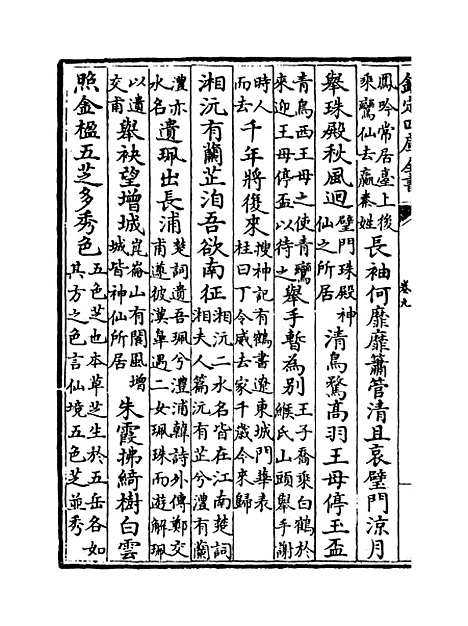 欽定四庫全書
卷九
鳳吟常居臺上後
乘鸞仙去嬴秦姓
長袖何靡靡簫管清且哀璧門涼月
舉珠殿秋風迴
璧門珠殿神
仙之所居
清鳥騖高羽王母停玉盃
青鳥西王母之使青鸞
來迎王母停盃以待之
舉手暫為別
王子喬乘白鶴於
緱氏山頭舉手謝
時人
而去
千年將復來
搜神記有鶴書遼東城門華表
柱曰丁令威去家千歲今來歸
湘沅有蘭芷汨吾欲南征
湘沅二水名皆在江南楚詞
湘夫人篇沅有芷兮澧有蘭
澧亦
水名
遺珮出長浦
楚詞遺吾珮兮澧浦韓詩外傳鄭交
甫遵彼漢臯遇二女珮珠而遊解珮
以遺
交甫
舉袂望增城
崑崙山有閬風增
城皆神仙所居
朱霞拂綺樹白雲
照金楹五芝多秀色
五色芝也本草芝生於五岳各如
其方之色言仙境五色芝並秀